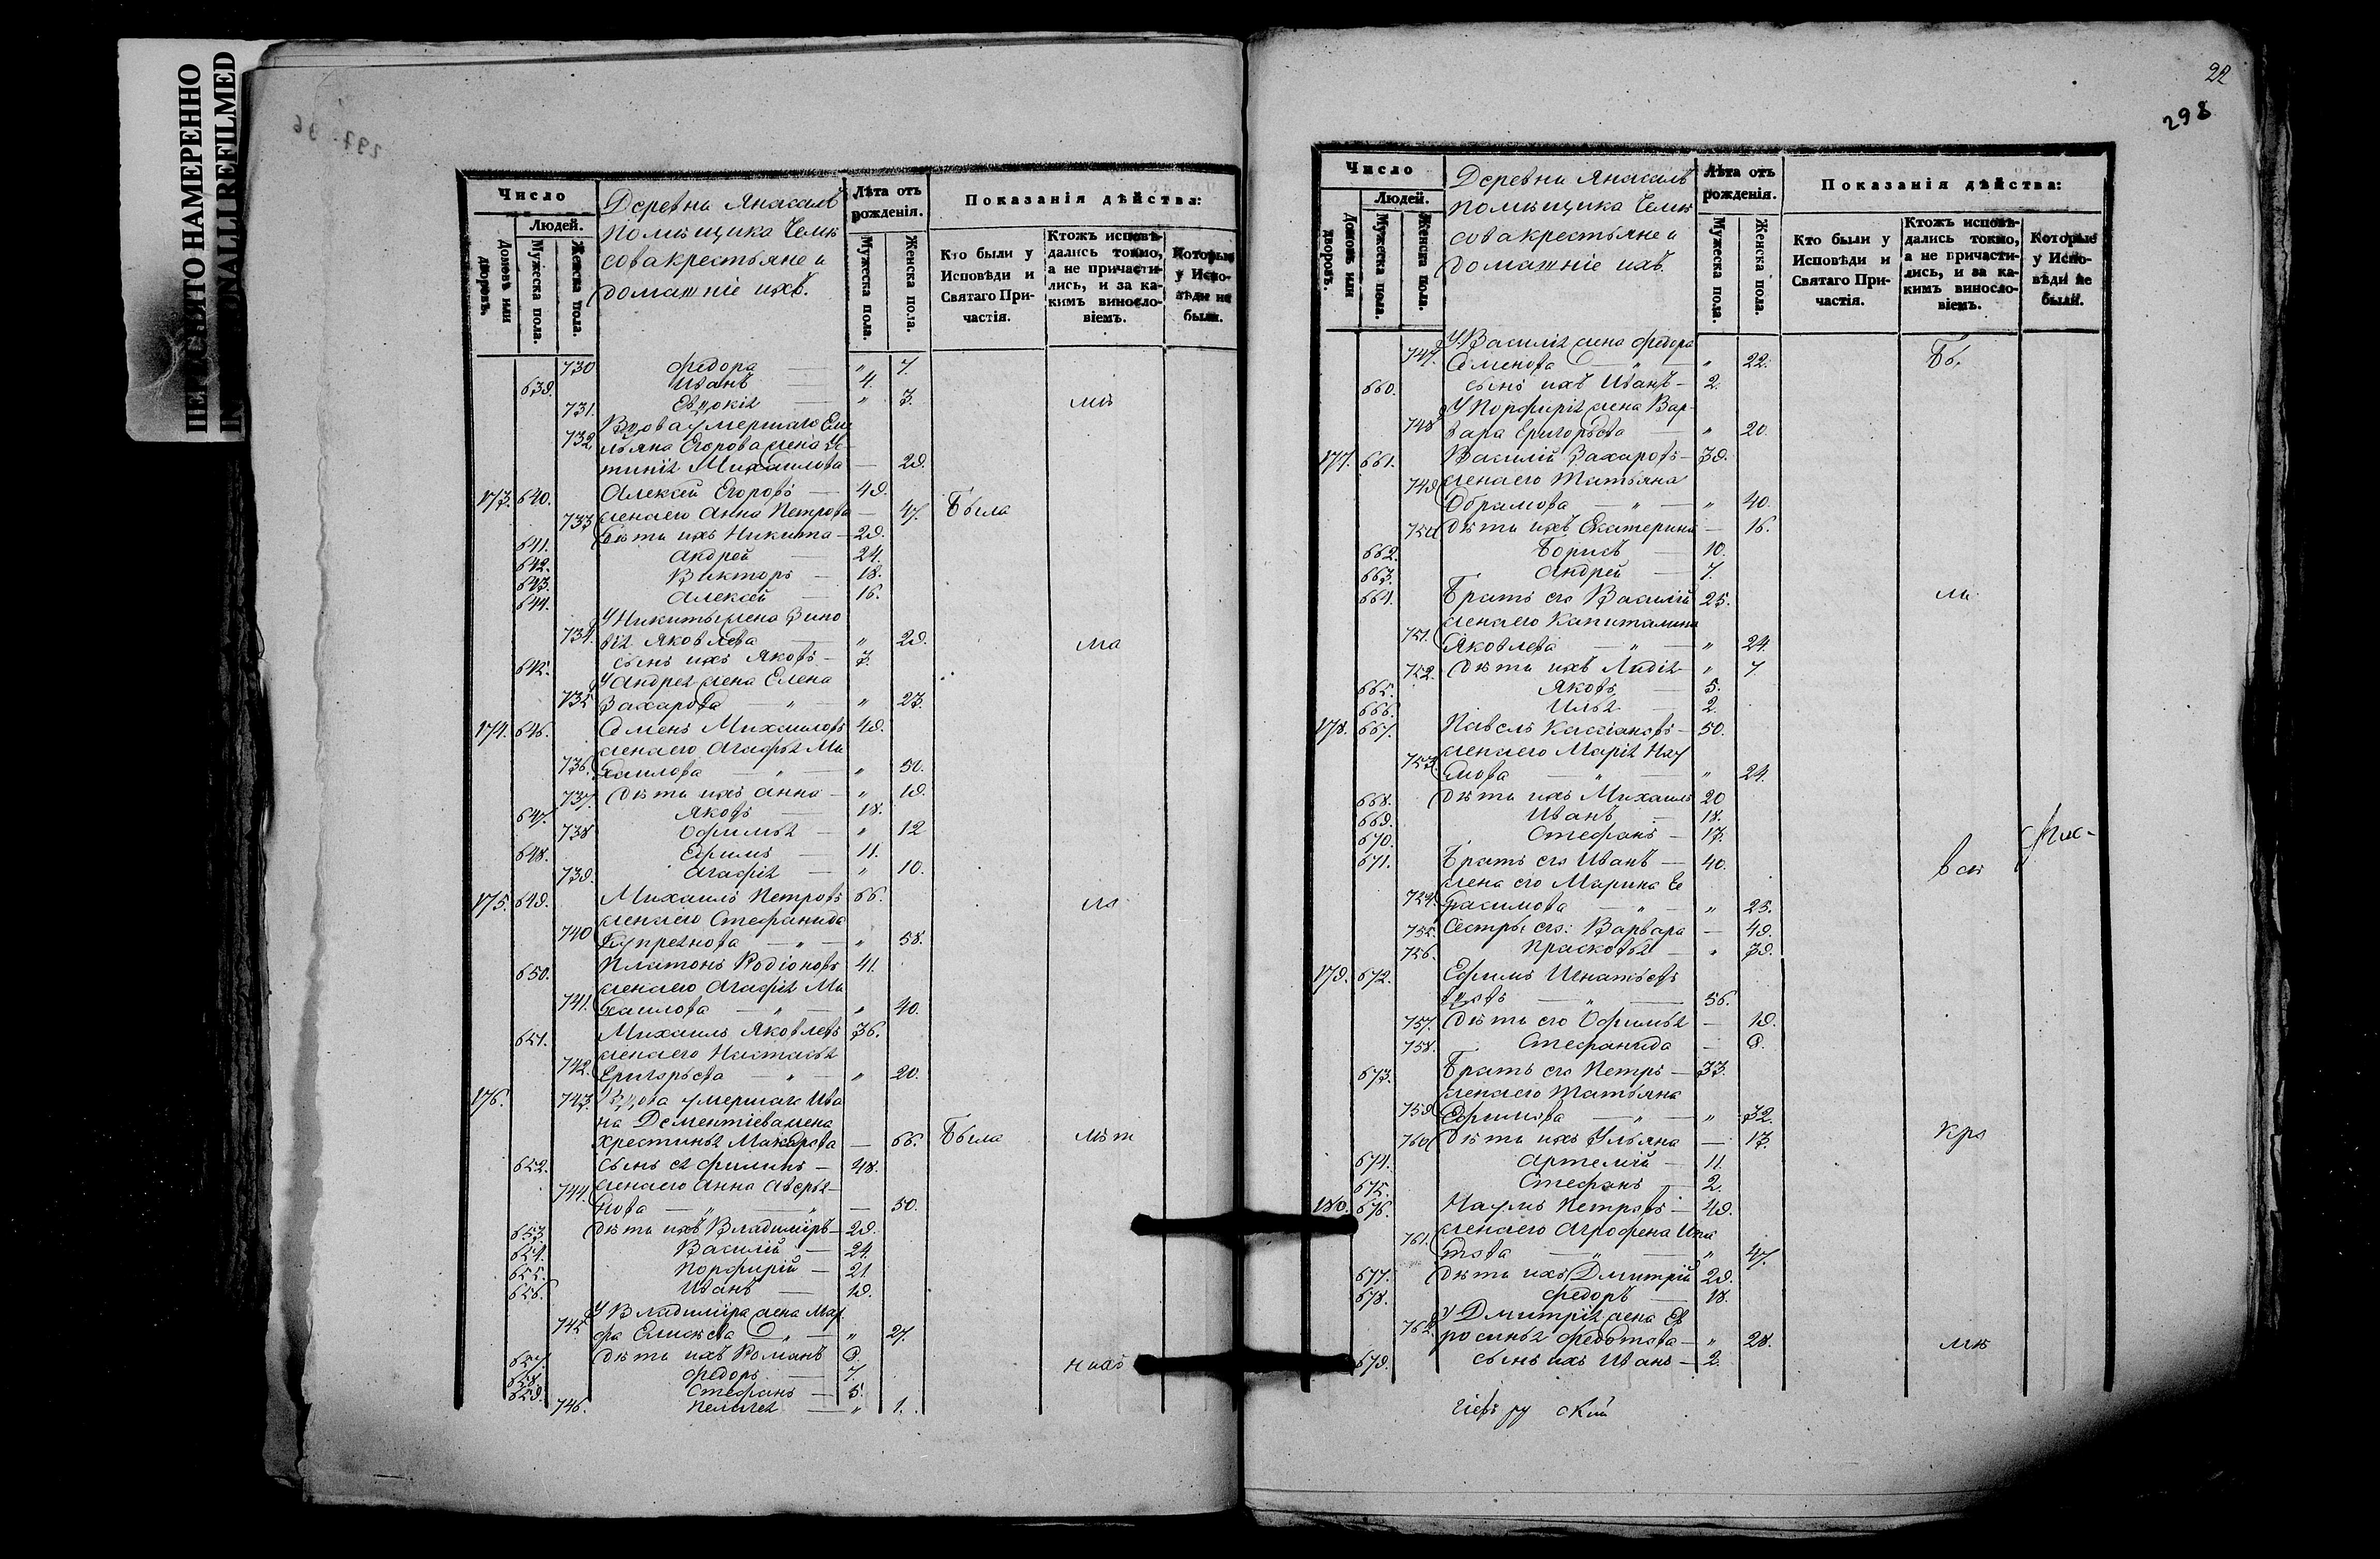 НАМЕРЕННО
REFILMED
Число
Людей.
Домовъ или дворовъ.
Мужеска пола.
Женска пола.
Деревни
помѣщика
сова крестьяне и
домашніе ихъ.
Лѣта отъ рожденія.
Мужеска пола.
Женска пола.
Показанія дѣйства:
Кто были у Исповѣди и Святаго При-частія.
Ктожъ исповѣ-дались токмо, а не причасти-лись, и за ка-кимъ винosло-віемъ.
Которые у Испо-вѣди не были.
730 Федора — " 7.
639. Иванъ 4.
731. Евдокія — " 3.
732 Вдова умершаго Еми
льяна Егорова жена Ус
тинія Михаилова — 29.
173. 640. Алексѣй Егоровъ — 49.
733 жена его Анна Петрова — 47. Была
641. Дѣти ихъ Никита — 29.
642. Андрей — 24.
643. Викторъ — 18.
644. Алексѣй — 16.
У Никиты жена Зино
734. вія Яковлева — " 29.
645. сынъ ихъ Яковъ — 3.
У Андрея жена Елена
735 Захарова — " — " 23.
174. 646. Семенъ Михаиловъ 49.
жена его Агафья Ми
736. хаилова — " — " 50.
737. Дѣти ихъ Анна — " 19.
647. Яковъ — 18.
738 Офимья — " 12
648. Ефимъ — 11.
739. Агафія — " 10.
175. 649. Михаилъ Петровъ 66.
жена его Стефанида
740 Купреянова — " — " 58.
650. Платонъ Родіоновъ 41.
жена его Агафія Ми
741. хаилова — " — " 40.
651. Михаилъ Яковлевъ 36.
жена его Настасья
742. Григорьева — " — " 20.
176. 743. Вдова умершаго Ива
на Дементіева жена
Христинья Макарова — 66. Была
652. сынъ ея Филипъ — 48.
744. жена его Анна Аверья-
нова — " — " — 50.
653. Дѣти ихъ Владиміръ — 29.
654. Василій — 24.
655. Порфирій — 21.
656. Иванъ — 19.
У Владиміра жена Мар
745 фа Елисѣева — " — " 27.
657. Дѣти ихъ Романъ 9.
658. Федоръ — 7.
659. Стефанъ — 5.
746. Пелагея — " 1.
22
298
Число
Людей.
Домовъ или дворовъ.
Мужеска пола.
Женска пола.
Деревни
помѣщика
сова крестьяне и
домашніе ихъ.
Лѣта отъ рожденія.
Мужеска пола.
Женска пола.
Показанія дѣйства:
Кто были у Исповѣди и Святаго При-частія.
Ктожъ исповѣ-дались токмо, а не причасти-лись, и за ка-кимъ виносло-віемъ.
Которые у Испо-вѣди не были.
У Василія жена Федора
747. Семенова — " — " 22.
660. сынъ ихъ Иванъ — 2.
У Порфирія жена Вар-
748 вара Григорьева — " 20.
177. 661. Василій Захаровъ — 39.
749 жена его Татьяна
Абрамова — " — " 40.
750 Дѣти ихъ Екатерина — 16.
662. Борисъ — 10.
663. Андрей — 7.
664. Братъ его Василій 25.
жена его Капиталина
751. Яковлева — " — " 24.
752. Дѣти ихъ Лидія " 7.
665. Яковъ — 5.
666. Илья — 2.
178. 667. Павелъ Кассіановъ — 50.
жена его Марія Нау
753. мова — " — " 24.
668. Дѣти ихъ Михаилъ 20
669. Иванъ — 18.
670. Стефанъ — 17.
671. Братъ его Иванъ — 40.
жена его Марина Ге
754. расимова — " — " 25.
755. Сестры его: Варвара — 49.
756. Прасковья — " 39.
179. 672. Ефимъ Игнатьевъ
вдовъ — " — 56.
757. Дѣти его Офимья — 19.
758. Стефанида — 9.
673. Братъ его Петръ — 33.
жена его Татьяна
759 Ефимова — " — " 32.
760 Дѣти ихъ Ульяна — 13.
674. Артемій — 11.
675. Стефанъ — 2.
180. 676. Наумъ Петровъ — 49.
761. жена его Агрофена Ипа
това — " — " 47.
677. Дѣти ихъ Дмитрій 29.
678. Федоръ — 18.
У Дмитрія жена Ев
762. росинья Федотова — " 28.
679. сынъ ихъ Иванъ — 2.